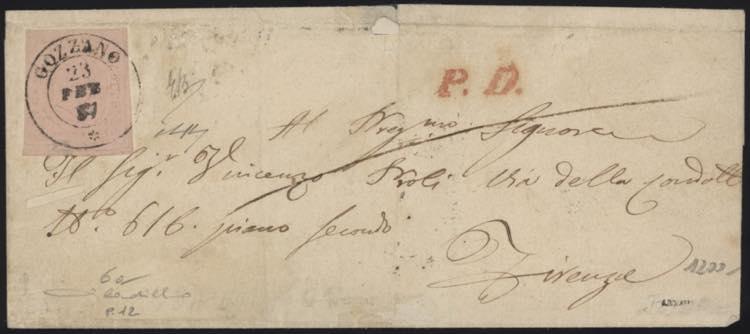 GOZZANO
23
FEB
P. D.
Al Preg.mo Signore
Il Sig.r Vincenzo via della Condott
N.o 616. piano secondo
Firenze
1200
6a
P.12